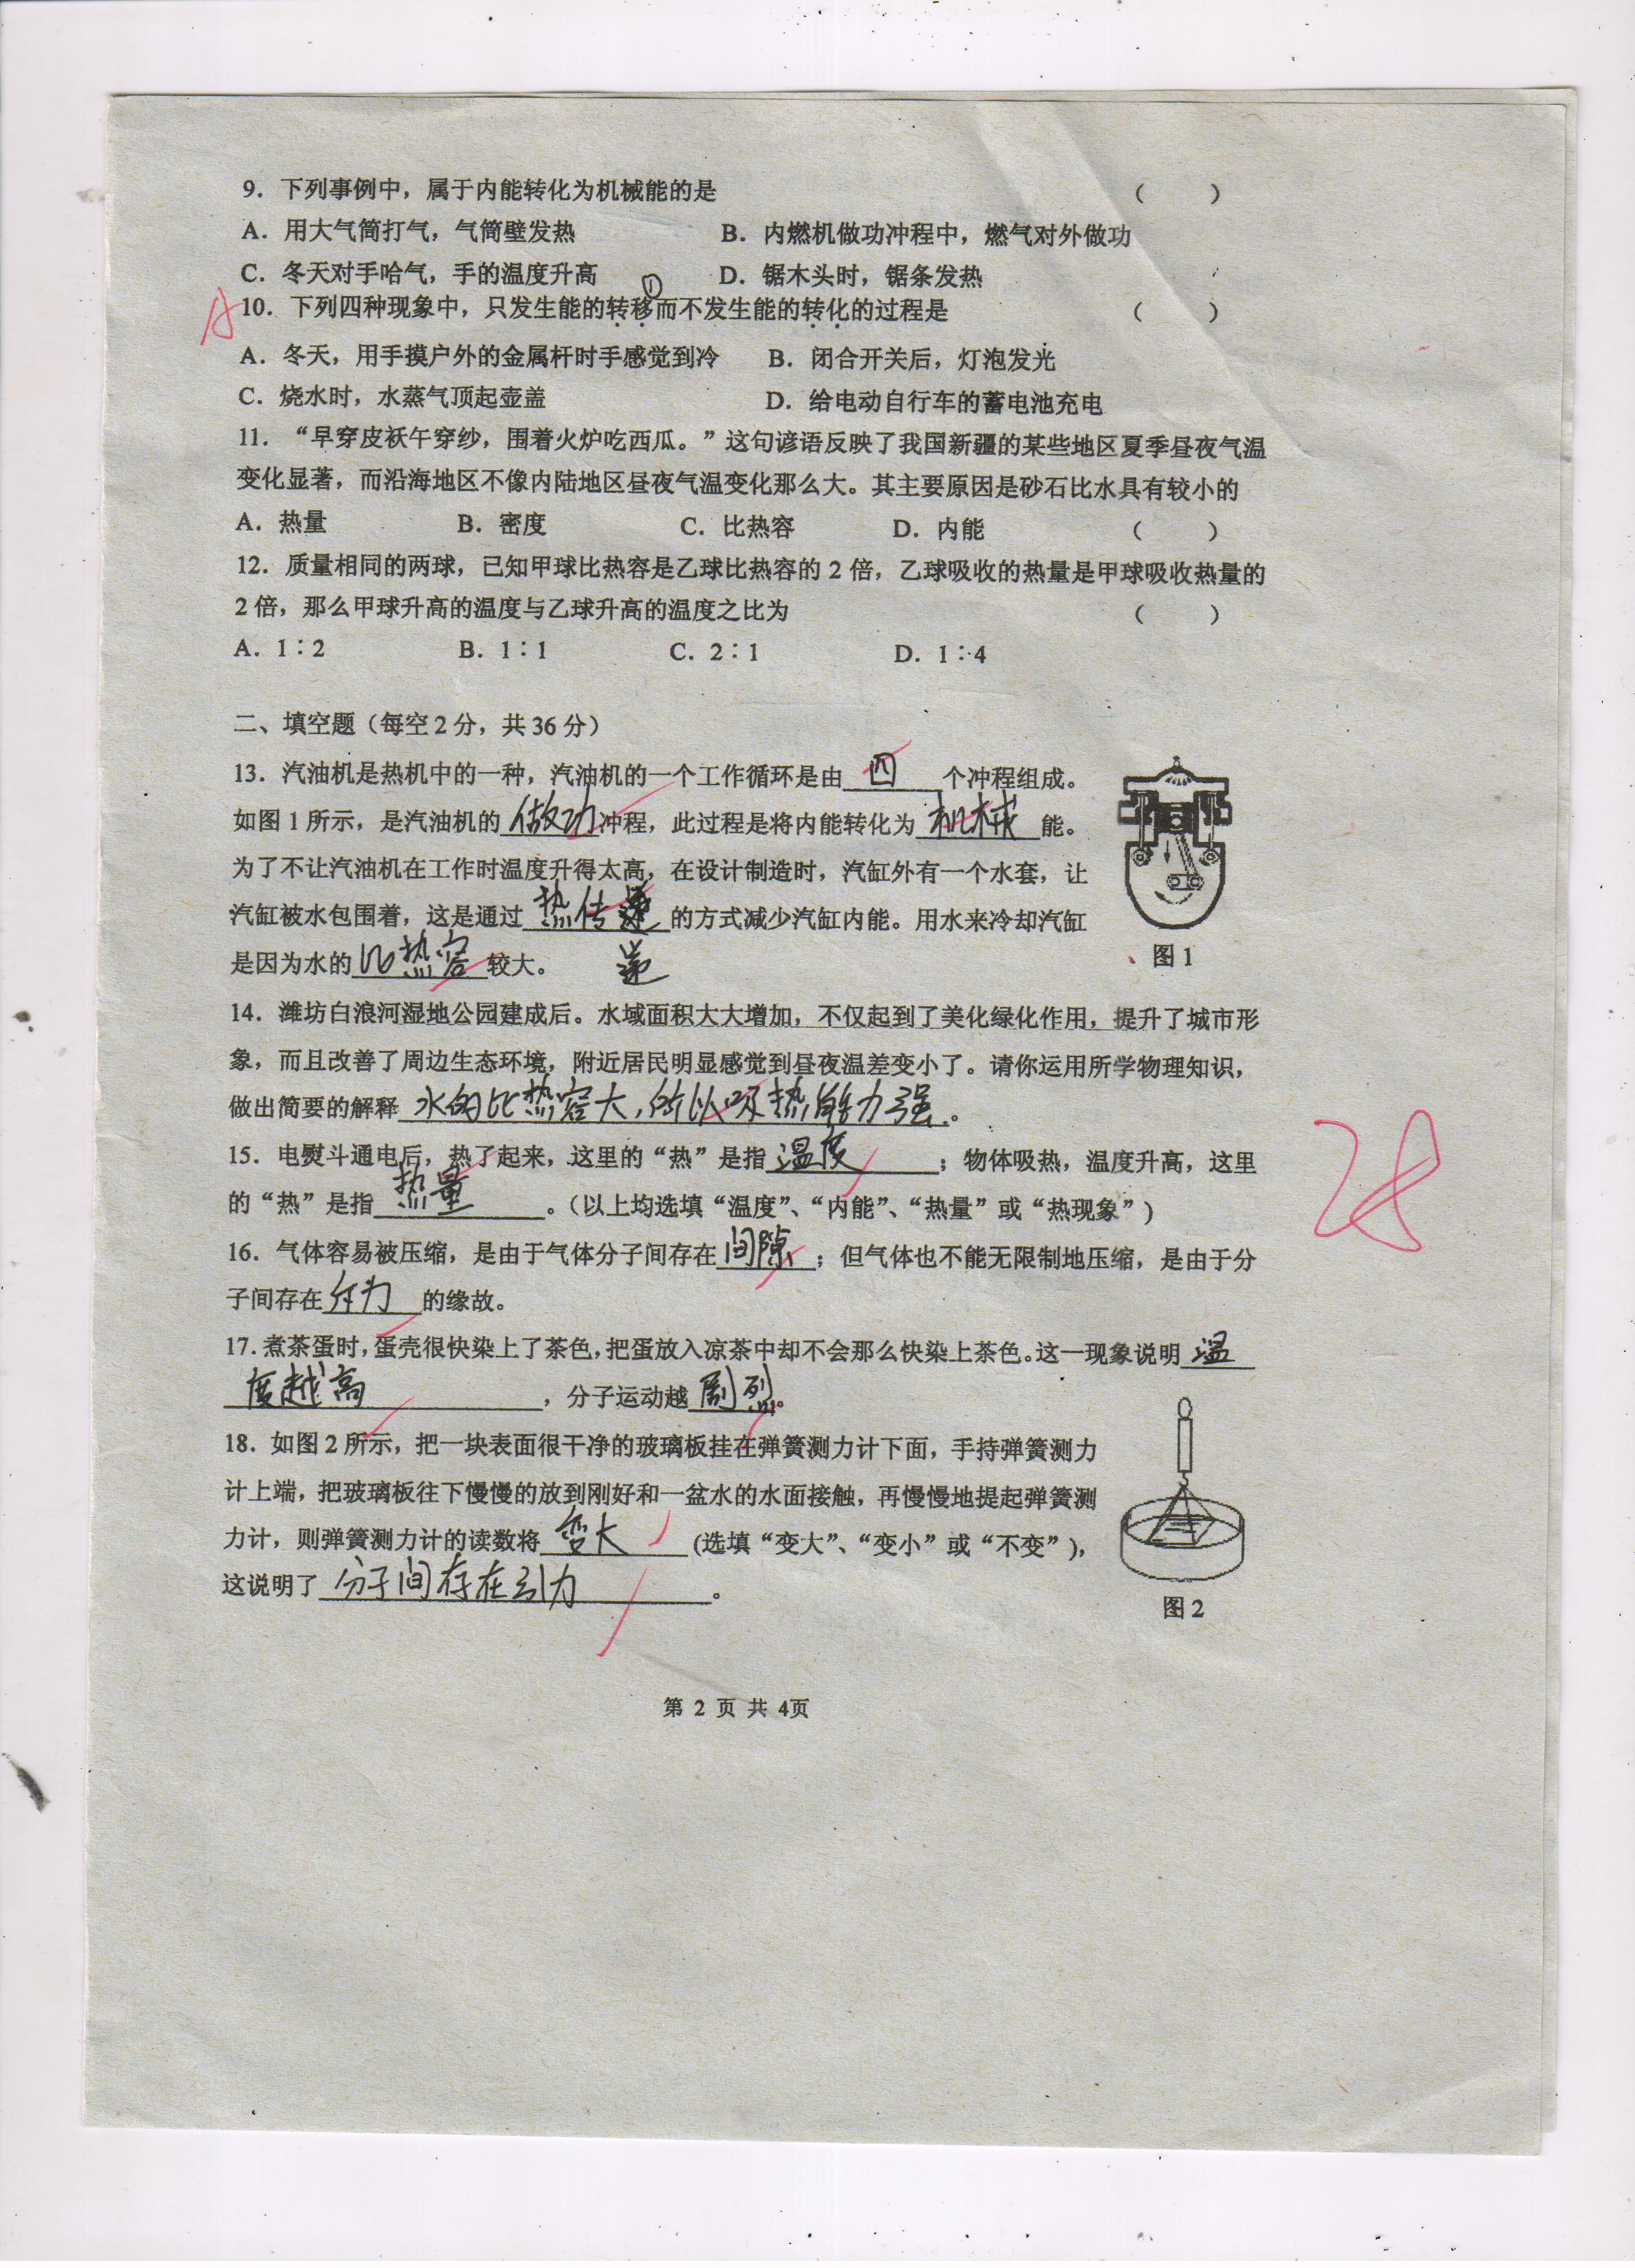 9．下列事例中，属于内能转化为机械能的是 （ ）
A．用大气筒打气，气筒壁发热 B．内燃机做功冲程中，燃气对外做功
C．冬天对手哈气，手的温度升高 D．锯木头时，锯条发热
①
A
10．下列四种现象中，只发生能的转移而不发生能的转化的过程是 （ ）
A．冬天，用手摸户外的金属杆时手感觉到冷 B．闭合开关后，灯泡发光
C．烧水时，水蒸气顶起壶盖 D．给电动自行车的蓄电池充电
11．“早穿皮袄午穿纱，围着火炉吃西瓜。”这句谚语反映了我国新疆的某些地区夏季昼夜气温
变化显著，而沿海地区不像内陆地区昼夜气温变化那么大。其主要原因是砂石比水具有较小的
A．热量 B．密度 C．比热容 D．内能 （ ）
12．质量相同的两球，已知甲球比热容是乙球比热容的 2 倍，乙球吸收的热量是甲球吸收热量的
2 倍，那么甲球升高的温度与乙球升高的温度之比为 （ ）
A．1∶2 B．1∶1 C．2∶1 D．1∶4
二、填空题（每空 2 分，共 36 分）
13．汽油机是热机中的一种，汽油机的一个工作循环是由 四 个冲程组成。
如图 1 所示，是汽油机的 做功 冲程，此过程是将内能转化为 机械 能。
为了不让汽油机在工作时温度升得太高，在设计制造时，汽缸外有一个水套，让
汽缸被水包围着，这是通过 热传递 的方式减少汽缸内能。用水来冷却汽缸
是因为水的 比热容 较大。 递
图 1
14．潍坊白浪河湿地公园建成后。水域面积大大增加，不仅起到了美化绿化作用，提升了城市形
象，而且改善了周边生态环境，附近居民明显感觉到昼夜温差变小了。请你运用所学物理知识，
做出简要的解释 水的比热容大,所以吸热能力强 。
15．电熨斗通电后，热了起来，这里的“热”是指 温度 ；物体吸热，温度升高，这里
的“热”是指 热量 。（以上均选填“温度”、“内能”、“热量”或“热现象”）
16．气体容易被压缩，是由于气体分子间存在 间隙 ；但气体也不能无限制地压缩，是由于分
子间存在 斥力 的缘故。
17. 煮茶蛋时，蛋壳很快染上了茶色，把蛋放入凉茶中却不会那么快染上茶色。这一现象说明 温
度越高 ，分子运动越 剧烈。
18．如图 2 所示，把一块表面很干净的玻璃板挂在弹簧测力计下面，手持弹簧测力
计上端，把玻璃板往下慢慢的放到刚好和一盆水的水面接触，再慢慢地提起弹簧测
力计，则弹簧测力计的读数将 变大 (选填“变大”、“变小”或“不变”)，
这说明了 分子间存在引力 。
图 2
28
第 2 页 共 4页